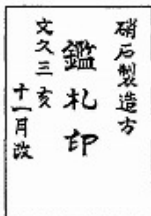 硝石製造方
鑑札印
文久三亥
十一月改